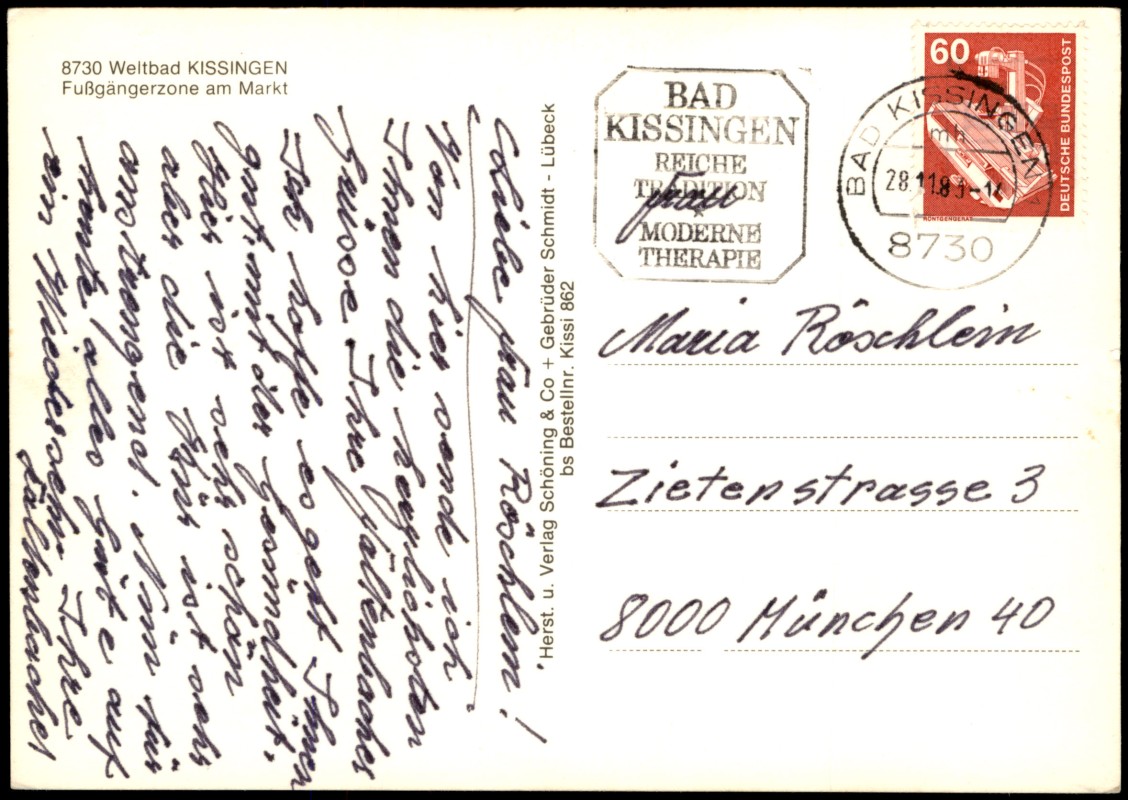 8730 Weltbad KISSINGEN
Fußgängerzone am Markt
Liebe Frau Röschlein!
Von hier sende ich
Ihnen die herzlichsten
Grüsse Ihre Fältenbacher
Ich hoffe es geht Ihnen
gut, mit der Gesundheit.
Hier ist sehr schön
aber die Kur ist sehr
anstrengend. Nun für
heute alles Gute auf
ein Wiedersehn Ihre
Fältenbacher
Herst. u. Verlag Schöning & Co + Gebrüder Schmidt - Lübeck
bs Bestellnr. Kissi 862
BAD
KISSINGEN
REICHE
TRADITION
*
MODERNE
THERAPIE
BAD KISSINGEN
mh
8730
60
DEUTSCHE BUNDESPOST
RÖNTGENGERÄT
Frau
Maria Röschlein
Zietenstrasse 3
8000 München 40